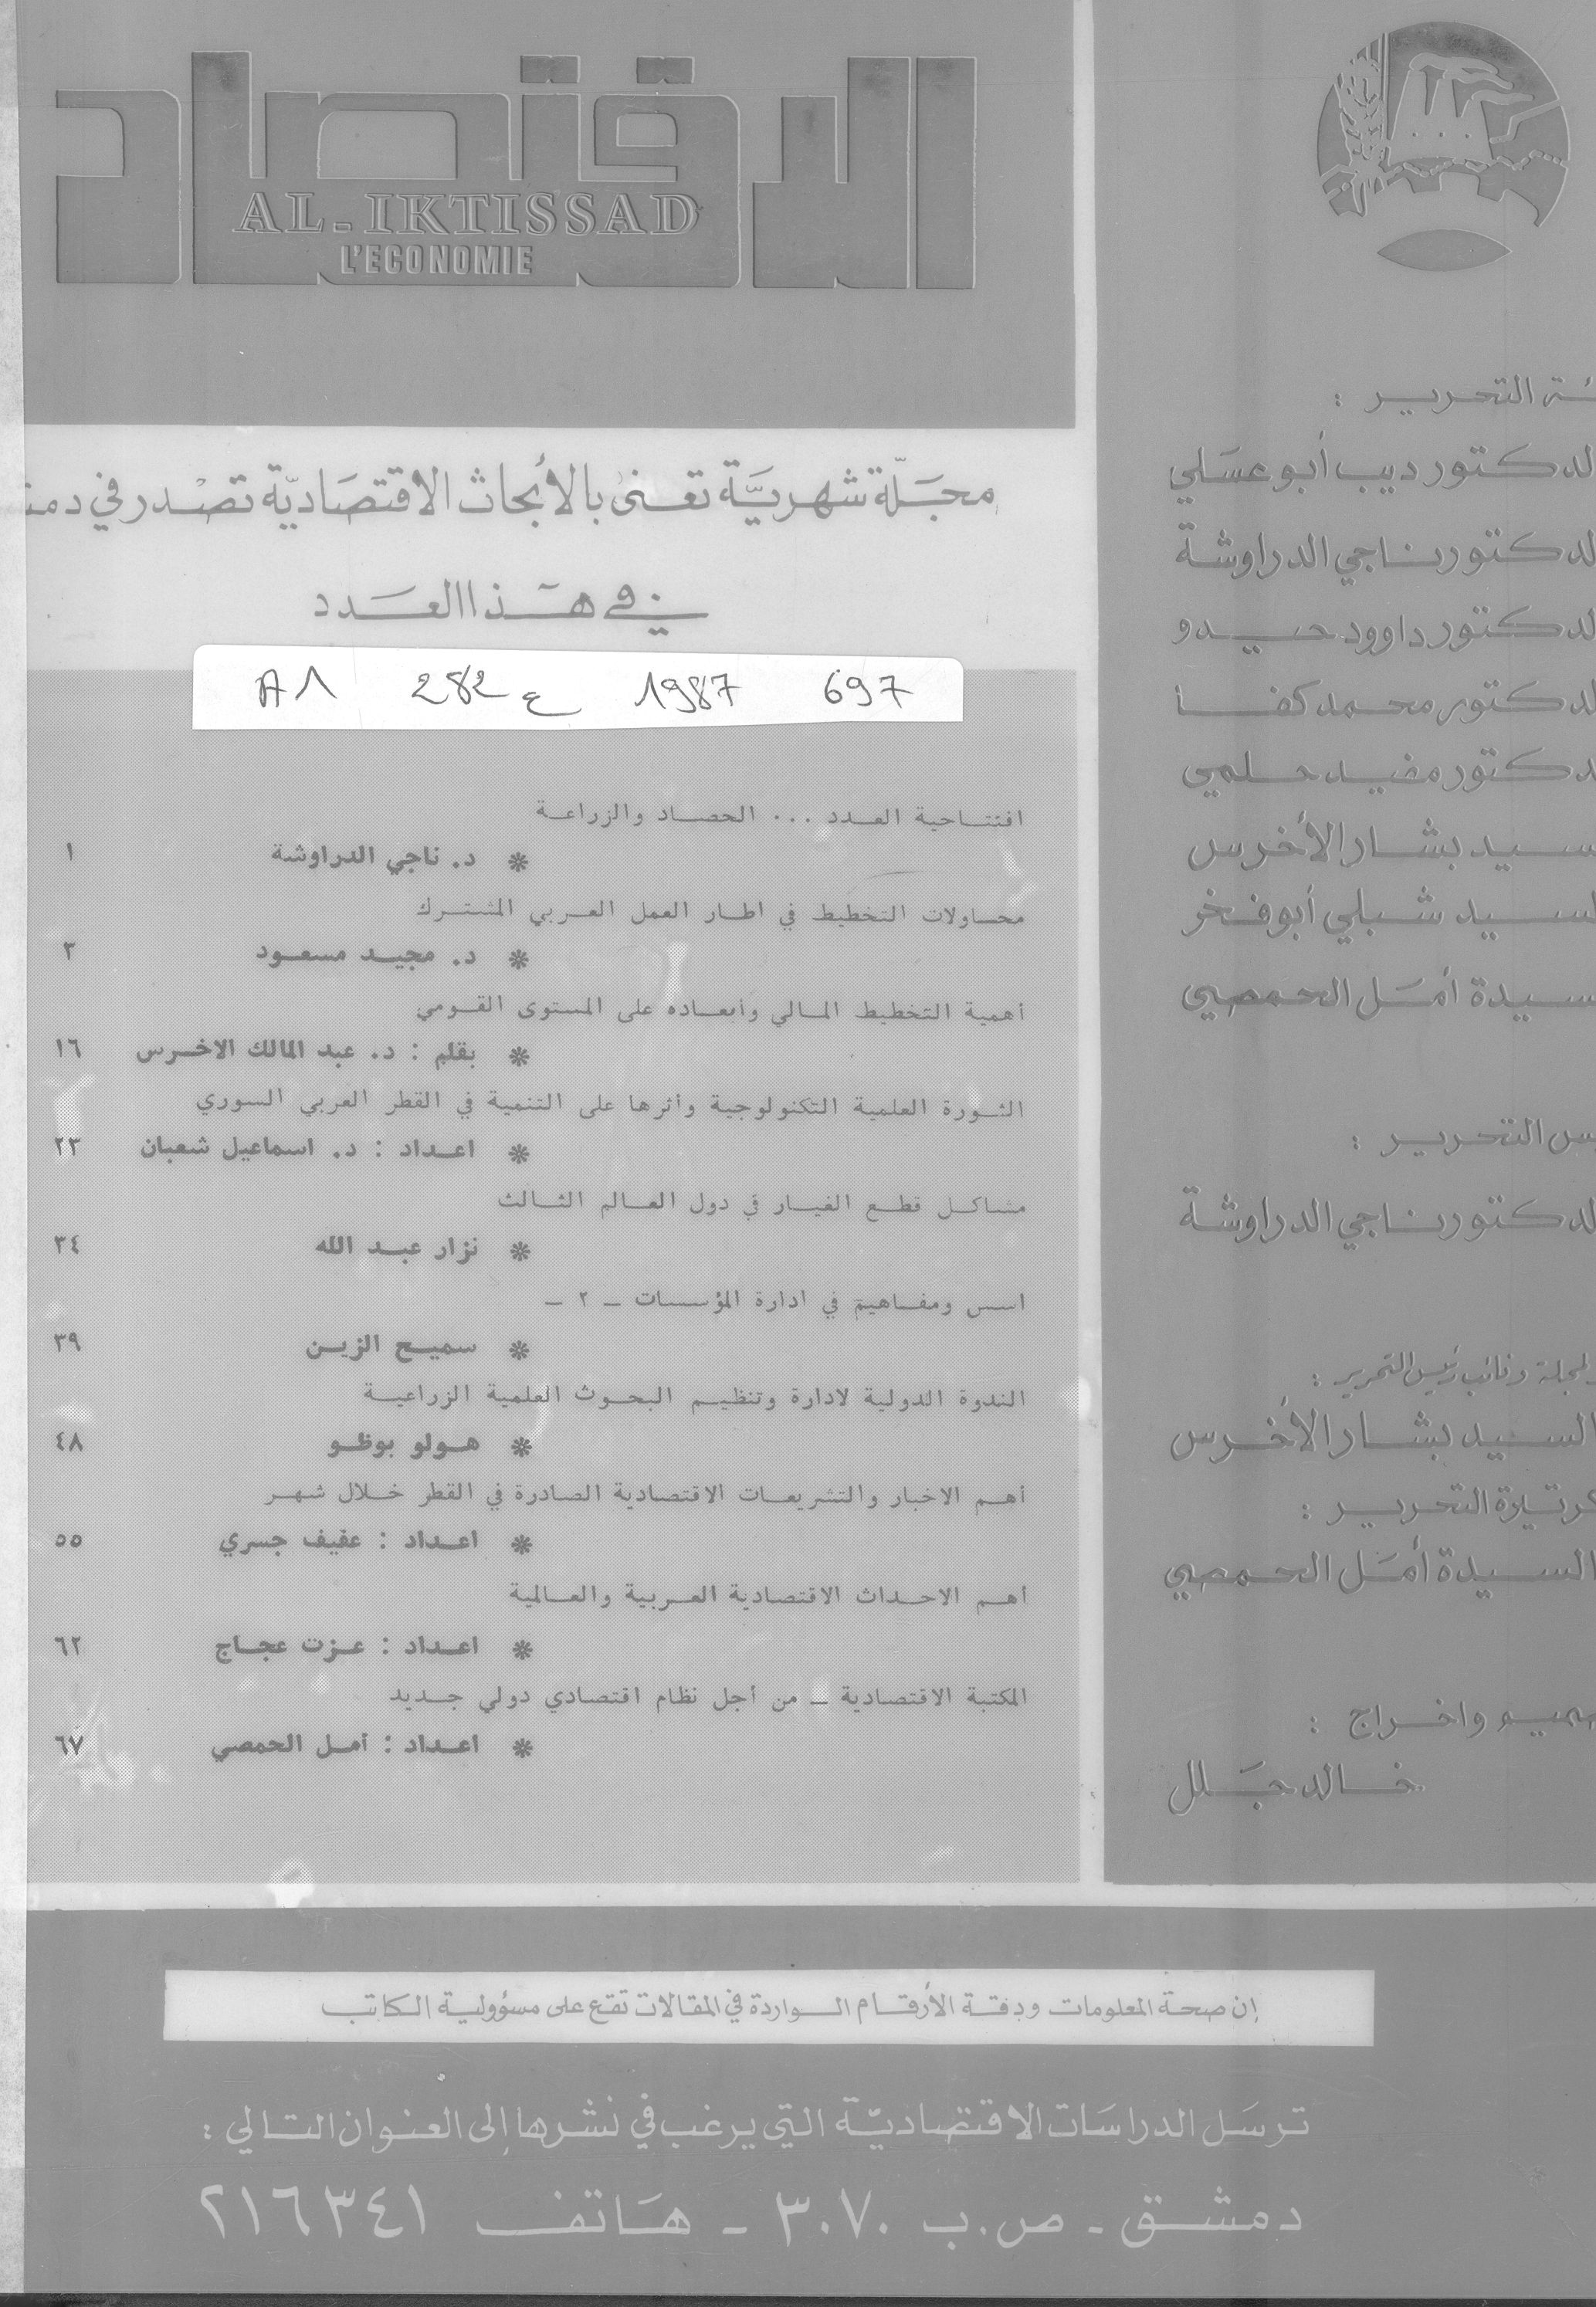 الاقتصاد
AL-IKTISSAD
L'ECONOMIE
مجَلّة شهريَّة تعنىٰ بالأبحاث الاقتصَاديّة تصْدر في
في هَذا العَدد
A1 282 ع 1987 697
افتتاحية العدد ... الحصاد والزراعة
* د. ناجي الدراوشة ١
محاولات التخطيط في اطار العمل العربي المشترك
* د. مجيد مسعود ٣
أهمية التخطيط المالي وأبعاده على المستوى القومي
* بقلم : د. عبد المالك الاخرس ١٦
الثورة العلمية التكنولوجية وأثرها على التنمية في القطر العربي السوري
* اعداد : د. اسماعيل شعبان ٢٣
مشاكل قطع الغيار في دول العالم الثالث
* نزار عبد الله ٣٤
اسس ومفاهيم في ادارة المؤسسات ـ ٢ ـ
* سميح الزين ٣٩
الندوة الدولية لادارة وتنظيم البحوث العلمية الزراعية
* هولو بوظو ٤٨
أهم الاخبار والتشريعات الاقتصادية الصادرة في القطر خلال شهر
* اعداد : عفيف جسري ٥٥
أهم الاحداث الاقتصادية العربية والعالمية
* اعداد : عزت عجاج ٦٢
المكتبة الاقتصادية ـ من أجل نظام اقتصادي دولي جديد
* اعداد : أمل الحمصي ٦٧
التحرير :
لدكتور ديب أبو عسَلي
لدكتور ناجي الدراوشة
لدكتور داوود حيدو
لدكتور محمد كفا
دكتور مفيد حلمي
سيد بشار الأخرس
لسيد شبلي أبو فخر
سيدة أمَل الحمصي
التحرير :
لدكتور ناجي الدراوشة
لمجلة ونائب رئيس التحرير :
السيد بشار الأخرس
التحرير :
السيدة أمَل الحمصي
واخراج :
خالد جَلل
إن صحة المعلومات ودقة الأرقام الواردة في المقالات تقع على مسؤولية الكاتب
ترسَل الدراسَات الاقتصاديّة التي يرغب في نشرها إلى العنوان التالي :
دمشق - ص.ب ٣٠٧٠ - هَاتف ٢١٦٣٤١